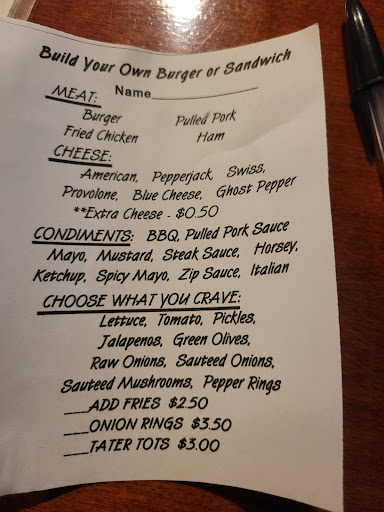 Build Your Own Burger or Sandwich
MEAT: Name_______________
Burger Pulled Pork
Fried Chicken Ham
CHEESE:
American, Pepperjack, Swiss,
Provolone, Blue Cheese, Ghost Pepper
**Extra Cheese - $0.50
CONDIMENTS: BBQ, Pulled Pork Sauce
Mayo, Mustard, Steak Sauce, Horsey,
Ketchup, Spicy Mayo, Zip Sauce, Italian
CHOOSE WHAT YOU CRAVE:
Lettuce, Tomato, Pickles,
Jalapenos, Green Olives,
Raw Onions, Sauteed Onions,
Sauteed Mushrooms, Pepper Rings
___ADD FRIES $2.50
___ONION RINGS $3.50
___TATER TOTS $3.00